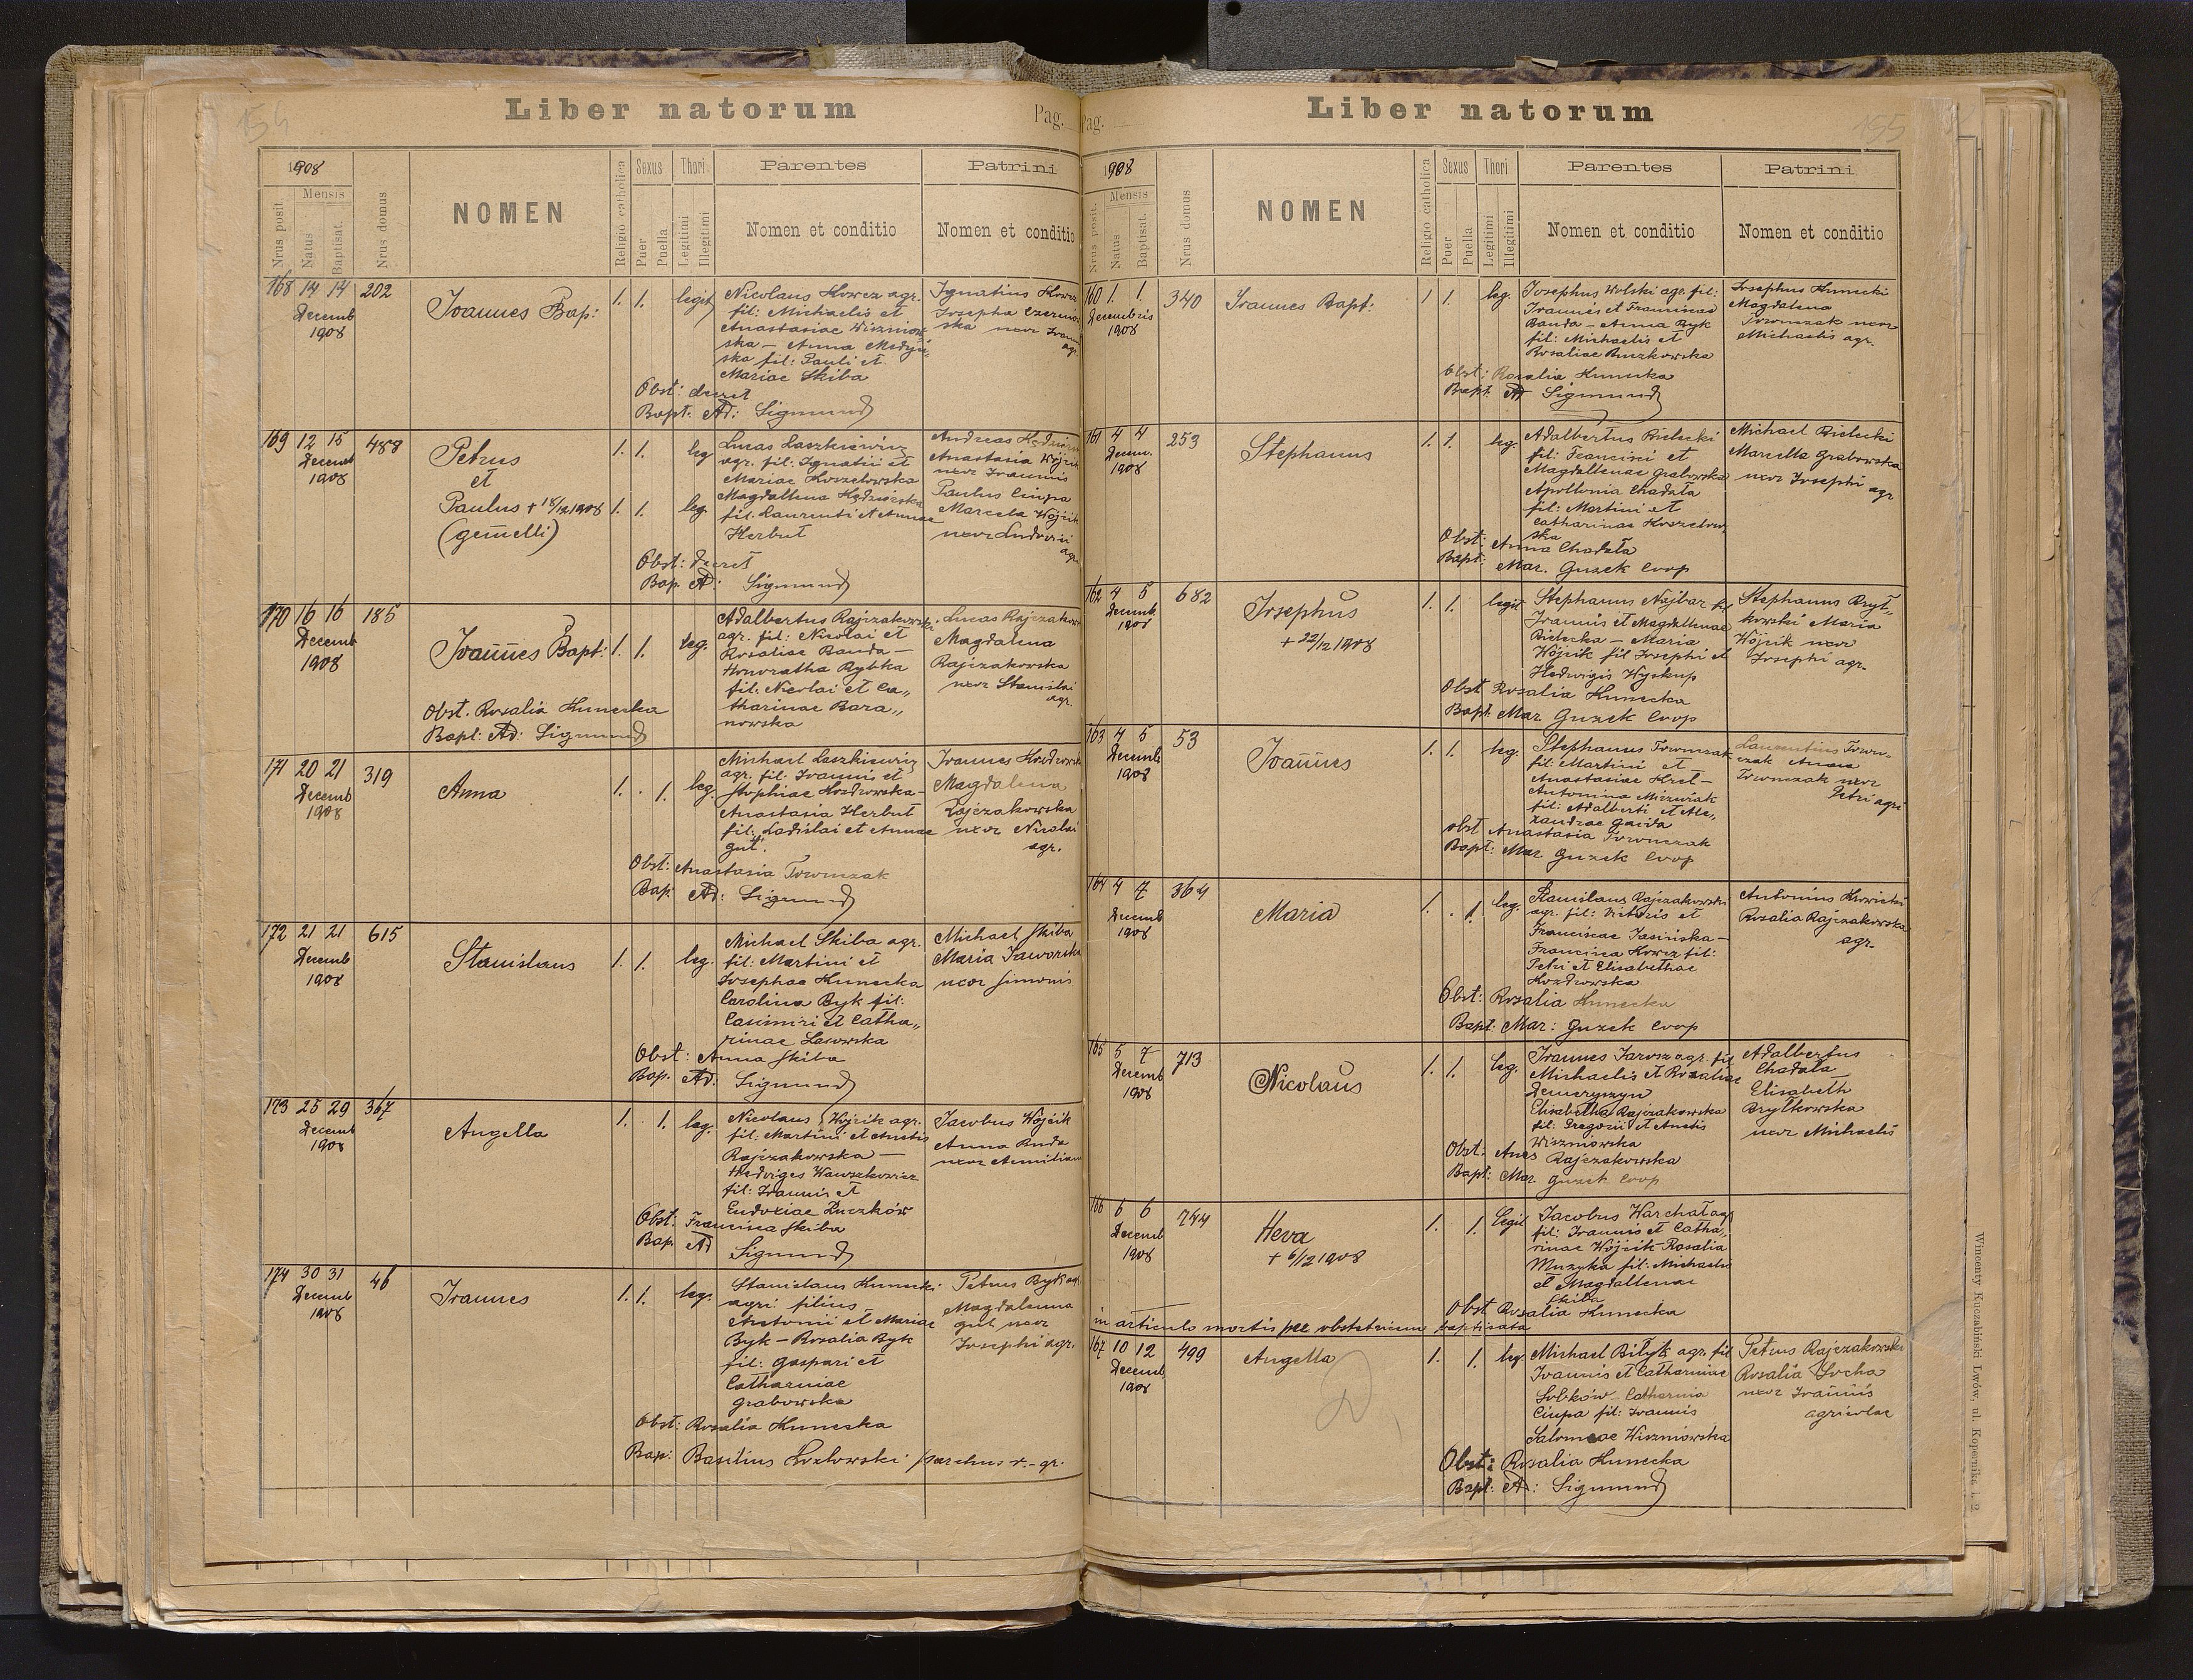 154
Liber natorum
Pag.
1908
Nrus posit.
Mensis
Natus
Baptisat.
Nrus domus
NOMEN
Religio catholica
Sexus
Puer
Puella
Thori
Legitimi
Illegitimi
Parentes
Nomen et conditio
Patrini
Nomen et conditio
168 14 14 202
Decemb
1908
Ioannes Bap:
1. 1. legit
Nicolaus Kowcz agr.
fil: Michaelis et
Anastasiae Wiszniow
ska — Anna Medyń„
ska fil: Pauli et
Mariae Skiba
Ignatius Kowcz
Iosepha
ska uxor Ioan
agr.
Obst: decret
Bapt. Ad: Sigmund
169 12 15 488
Decemb
1908
Petrus
et
Paulus + 18/12 1908
(gemelli)
1. 1. leg
1. 1. leg.
Lucas Laszkiewicz
agr. fil: Ignatii et
Mariae Koszelowska
Magdalena
fil. Laurenti et Annae
Herbut
Andreas
Anastasia Wójcik
uxor Ioannis
Paulus Ciupa
Marcela Wójcik
uxor Ludovici
agr.
Obst: decret
Bap. Ad: Sigmund
170 16 16 185
Decemb
1908
Ioannes Bapt:
1. 1. leg.
Adalbertus Rajczakowski
agr. fil: Nicolai et
Rosaliae Banda —
Honoratha Rybka
fil: Nicolai et Ca„
tharinae Bara„
nowska
Lucas Rajczakow
Magdalena
Rajczakowska
uxor Stanislai
agr.
Obst. Rosalia Kunecka
Bapt: Ad: Sigmund
171 20 21 319
Decemb
1908
Anna
1. . 1. leg.
Michael Laszkiewicz
agr. fil: Ioannis et
Sophiae Kozdrowska -
Anastasia Herbut
fil: Ladislai et Annae
gut.
Ioannes
Magdalena
Rajczakowska
uxor Nicolai
agr.
Obst: Anastasia Towmczak
Bap: Ad: Sigmund
172 21 21 615
Decemb
1908
Stanislaus
1. 1. leg.
Michael Skiba agr.
fil: Martini et
Iosephae Kunecka
Carolina Byk fil:
Casimiri et Catha„
rinae Lasowska
Michael Skiba
Maria Jaworska
uxor Simonis
Obst: Anna Skiba
Bap. Ad. Sigmund
173 25 29 367
Decemb
1908
Angella
1. 1. leg.
Nicolaus Wójcik agr.
fil: Martini et Anetis
Rajczakowska —
Hedviges Wawszkowicz
fil: Ioannis et
Eudoxiae Luczków
Jacobus Wójcik
Anna Buda
uxor Aemiliani
Obst: Francisca Skiba
Bap. Ad Sigmund
174 30 31 46
Decemb
1908
Ioannes
1. 1. leg.
Stanislaus Kunecki
agri filius
Antonii et Mariae
Byk — Rosalia Byk
fil: Gaspari et
Catharinae
Grabowska
Petrus Byk agr
Magdalena
gut uxor
Iosephi agr.
Obst: Rosalia Kunecka
Bap: Basilius Kozłowski parchus r.-gr.
155
Liber natorum
Pag.
1908
Nrus posit.
Mensis
Natus
Baptisat.
Nrus domus
NOMEN
Religio catholica
Sexus
Puer
Puella
Thori
Legitimi
Illegitimi
Parentes
Nomen et conditio
Patrini
Nomen et conditio
160 1. 1. 340
Decembris
1908
Ioannes Bapt:
1 1. leg.
Iosephus Wolski agr. fil:
Ioannis et Franciscae
Banda — Anna Byk
fil: Michaelis et
Rosaliae Ruczkowska
Iosephus Kunecki
Magdalena
Towmczak uxor
Michaelis agr.
Obst: Rosalia Kunecka
Bapt. Ad Sigmund
161 4 4 253
Decem.
1908
Stephanus
1. 1. leg.
Adalbertus Bielecki
fil: Francisci et
Magdalenae Grabowska
Apollonia Chadała
fil: Martini et
Catharinae Koszelow„
ska
Michael Bielecki
Marcella Grabowska
uxor Iosephi agr
Obst: Anna Chadała
Bapt: Mar. Guzek Coop
162 4 5 682
Decemb.
1908
Iosephus
+ 22/12 1908
1. 1. legit
Stephanus Najbar fil
Ioannis et Magdalenae
Bielecka — Maria
Wójcik fil Iosephi et
Hedwigis Wyskup
Stephanus Bryt„
kowski Maria
Wójcik uxor
Iosephi agr.
Obst Rosalia Kunecka
Bapt: Mar Guzek Coop
163 4 5 53
Decemb
1908
Ioannes
1. 1. leg.
Stephanus Towmczak
fil: Martini et
Anastasiae Krel —
Antonina Mizwiak
fil: Adalberti et Ale„
xandrae Gawda
Laurentius Towm-
czak Anna
Towmczak uxor
Petri agri
obst Anastasia Towmczak
Bapt: Mar. Guzek Coop
164 4 7 364
Decemb
1908
Maria
1. . 1. leg.
Stanislaus Rajczakowski
agr. fil: Victoris et
Franciscae Jasińska —
Francisca Kowcz fil:
Petri et Elisabethae
Kozdrowska
Antonius Krowicki
Rosalia Rajczakowska
agr.
Obst: Rosalia Kunecka
Bapt: Mar: Guzek Coop
165 5 7 713
Decemb
1908
Nicolaus
1. 1. leg.
Ioannes Jarosz agr. fil
Michaelis et Rosaliae
Demeryszyn
Elisabetha Rajczakowska
fil: Gregorii et Anetis
Wiszniowska
Adalbertus
Chadała
Elisabeth
Brytkowska
uxor Michaelis
Obst: Anes Rajczakowska
Bapt: Mar. Guzek Coop
166 6 6 744
Decemb
1908
Heva
+ 6/12 1908
1. 1. legit
Jacobus Warchał agr
fil: Ioannis et Catha„
rinae Wójcik Rosalia
Muzyka fil: Michaelis
et Magdalenae
Skiba
Obst Rosalia Kunecka
in articulo mortis per obstetricem baptisata
167 10 12 499
Decemb
1908
Angella
1. 1. leg.
Michael Biłyk agr. fil
Ioannis et Catharinae
Sobków - Catharina
Ciupa fil: Ioannis
Salomeae Wiszniowska
Petrus Rajczakowski
Rosalia Socha
uxor Ioannis
agricolae
Obst: Rosalia Kunecka
Bapt. Ad: Sigmund
Wincenty Kuczabiński Lwów, ul. Kopernika l. 2